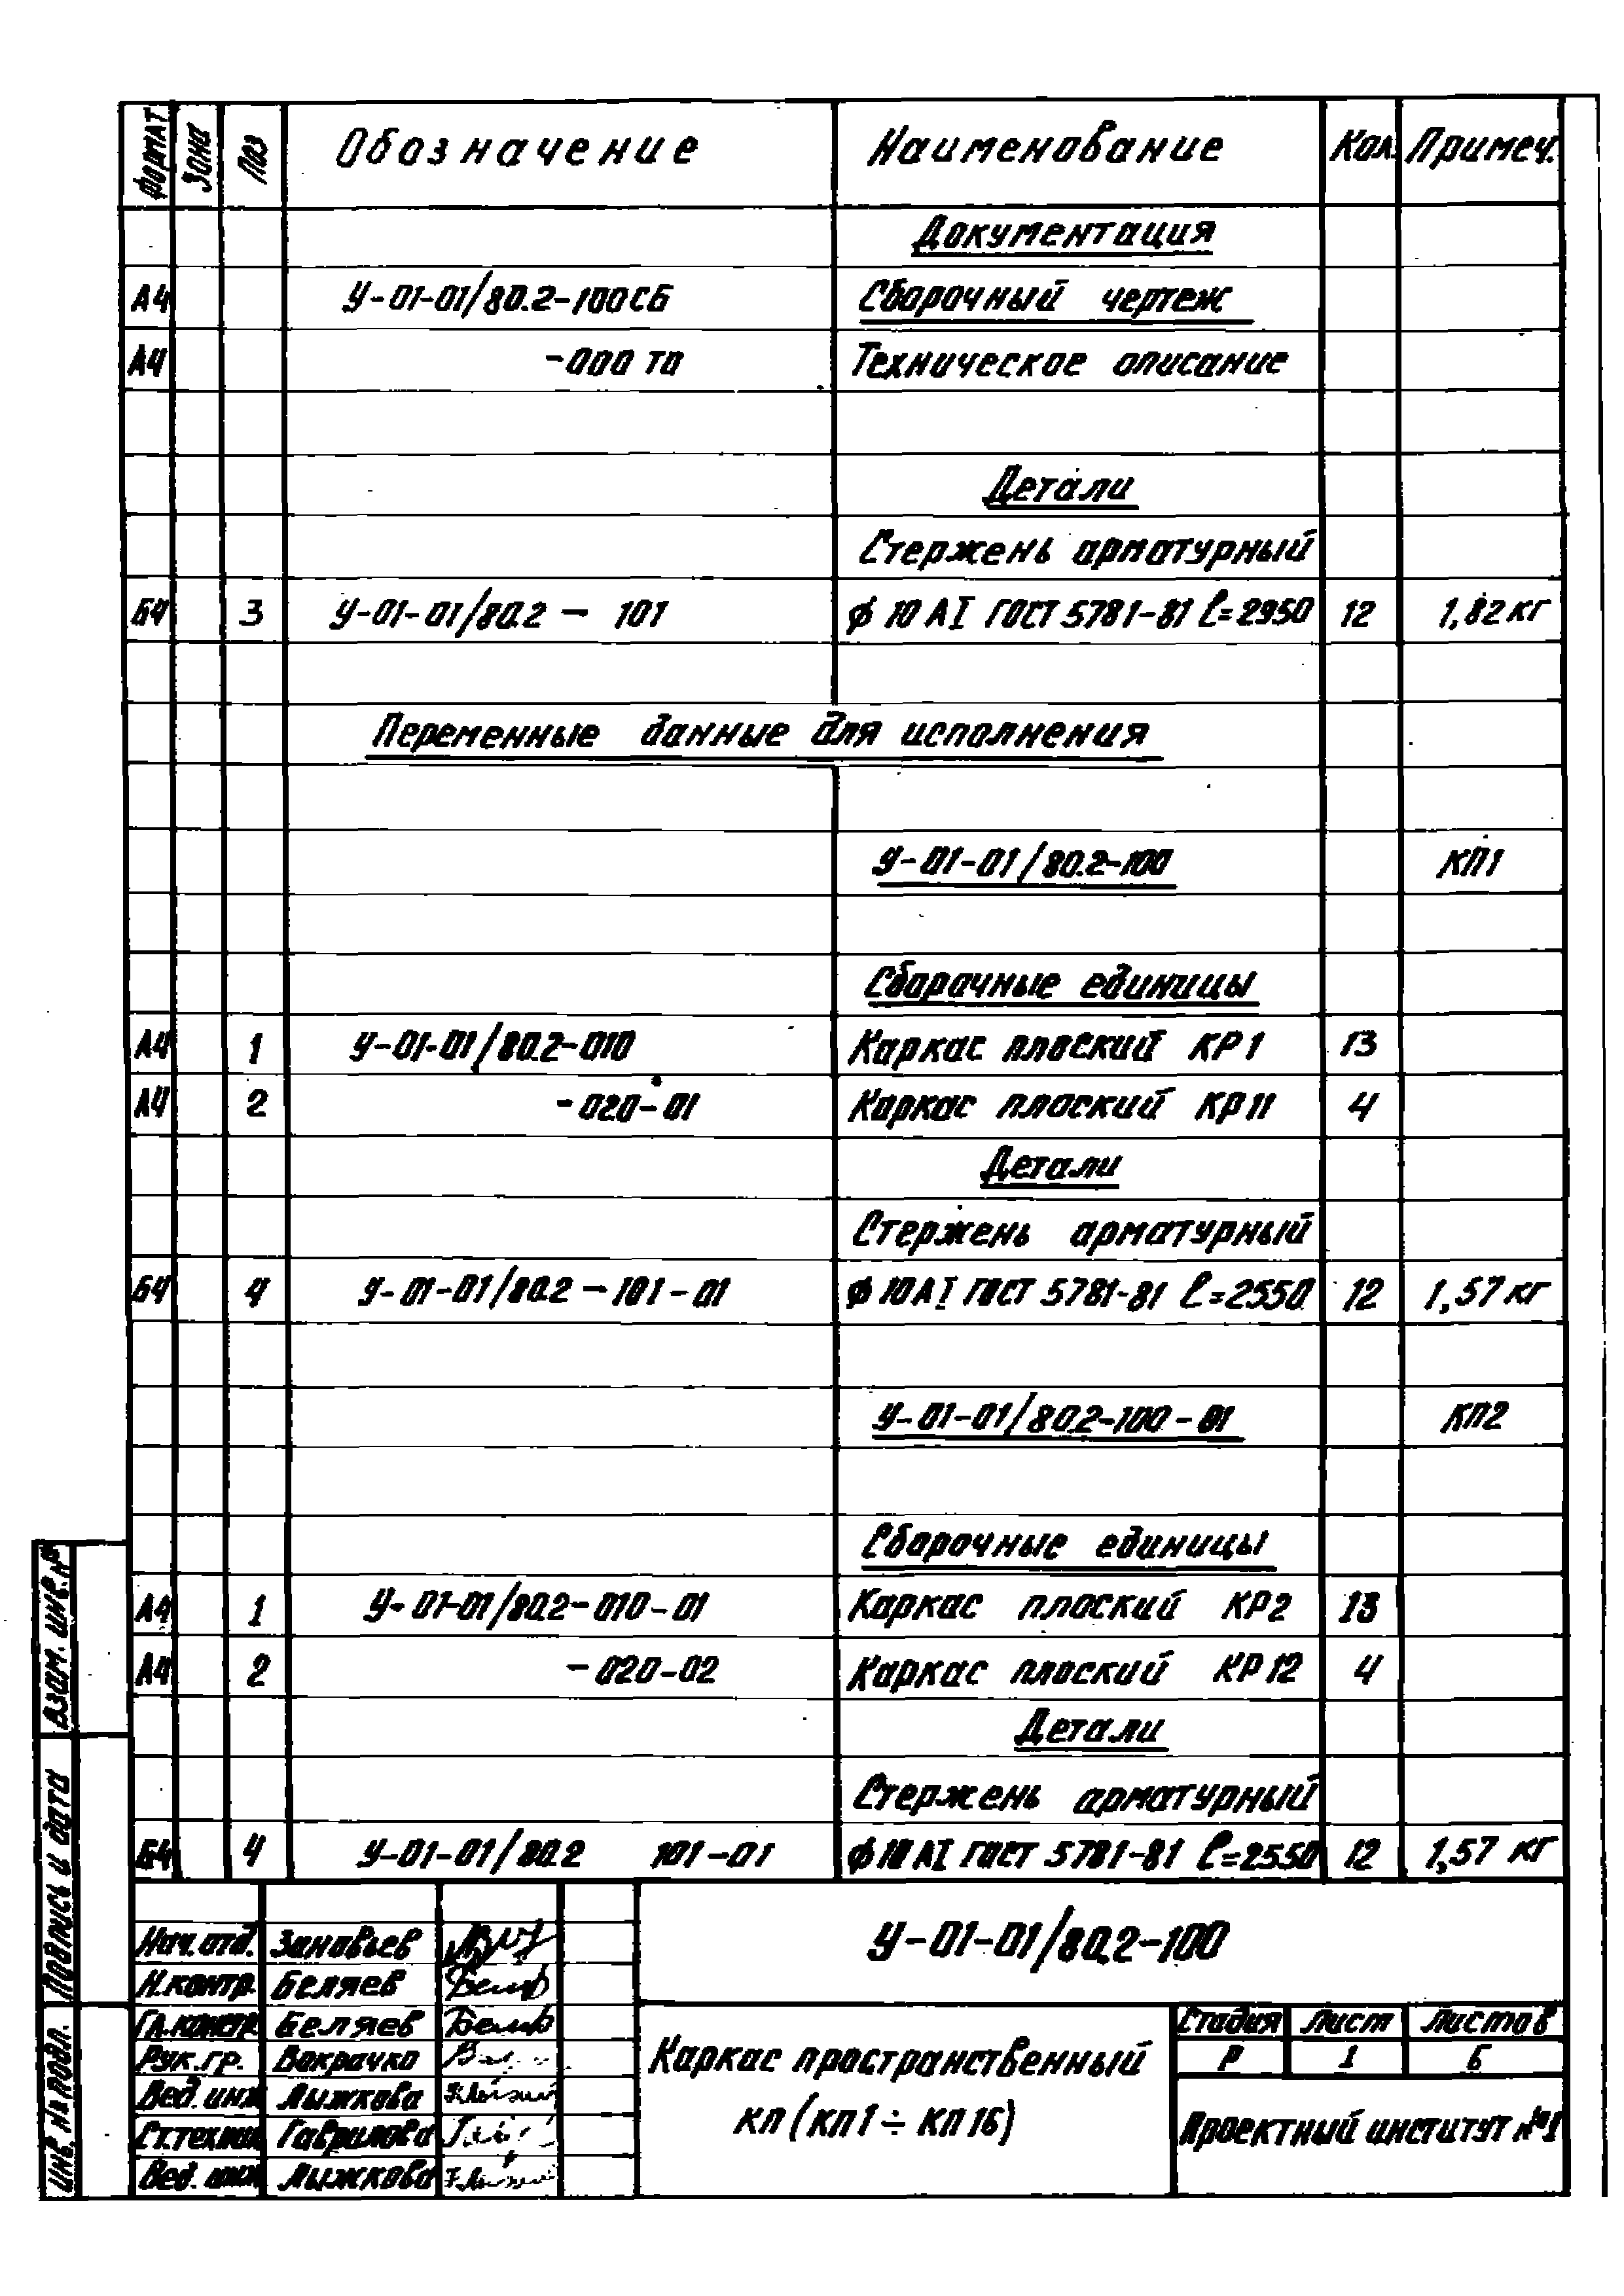 Формат Зона Поз Обозначение Наименование Кол. Примеч.
Документация
А4 У-01-01/80.2-100СБ Сборочный чертеж
А4 -000 ТО Техническое описание
Детали
Стержень арматурный
Б4 3 У-01-01/80.2 — 101 ϕ 10 АI ГОСТ 5781-81 ℓ=2950 12 1,82 кг
Переменные данные для исполнения
У-01-01/80.2-100 КП1
Сборочные единицы
А4 1 У-01-01/80.2-010 Каркас плоский КР1 13
А4 2 -020-01 Каркас плоский КР11 4
Детали
Стержень арматурный
Б4 4 У-01-01/80.2-101-01 ϕ 10 АI ГОСТ 5781-81 ℓ=2550 12 1,57 кг
У-01-01/80.2-100-01 КП2
Сборочные единицы
А4 1 У-01-01/80.2-010-01 Каркас плоский КР2 13
А4 2 -020-02 Каркас плоский КР12 4
Детали
Стержень арматурный
Б4 4 У-01-01/80.2 101-01 ϕ 10 АI ГОСТ 5781-81 ℓ=2550 12 1,57 кг
Взам. инв. №
Подпись и дата
Инв. № подл.
Нач. отд. Зановьев
Н.контр. Беляев
Гл.констр. Беляев
Рук.гр. Вокрачко
Вед. инж Лыжкова
Ст.техник Гаврилова
Вед. инж Лыжкова
У-01-01/80.2-100
Каркас пространственный
КП (КП1 ÷ КП16)
Стадия Лист Листов
Р 1 6
Проектный институт №1